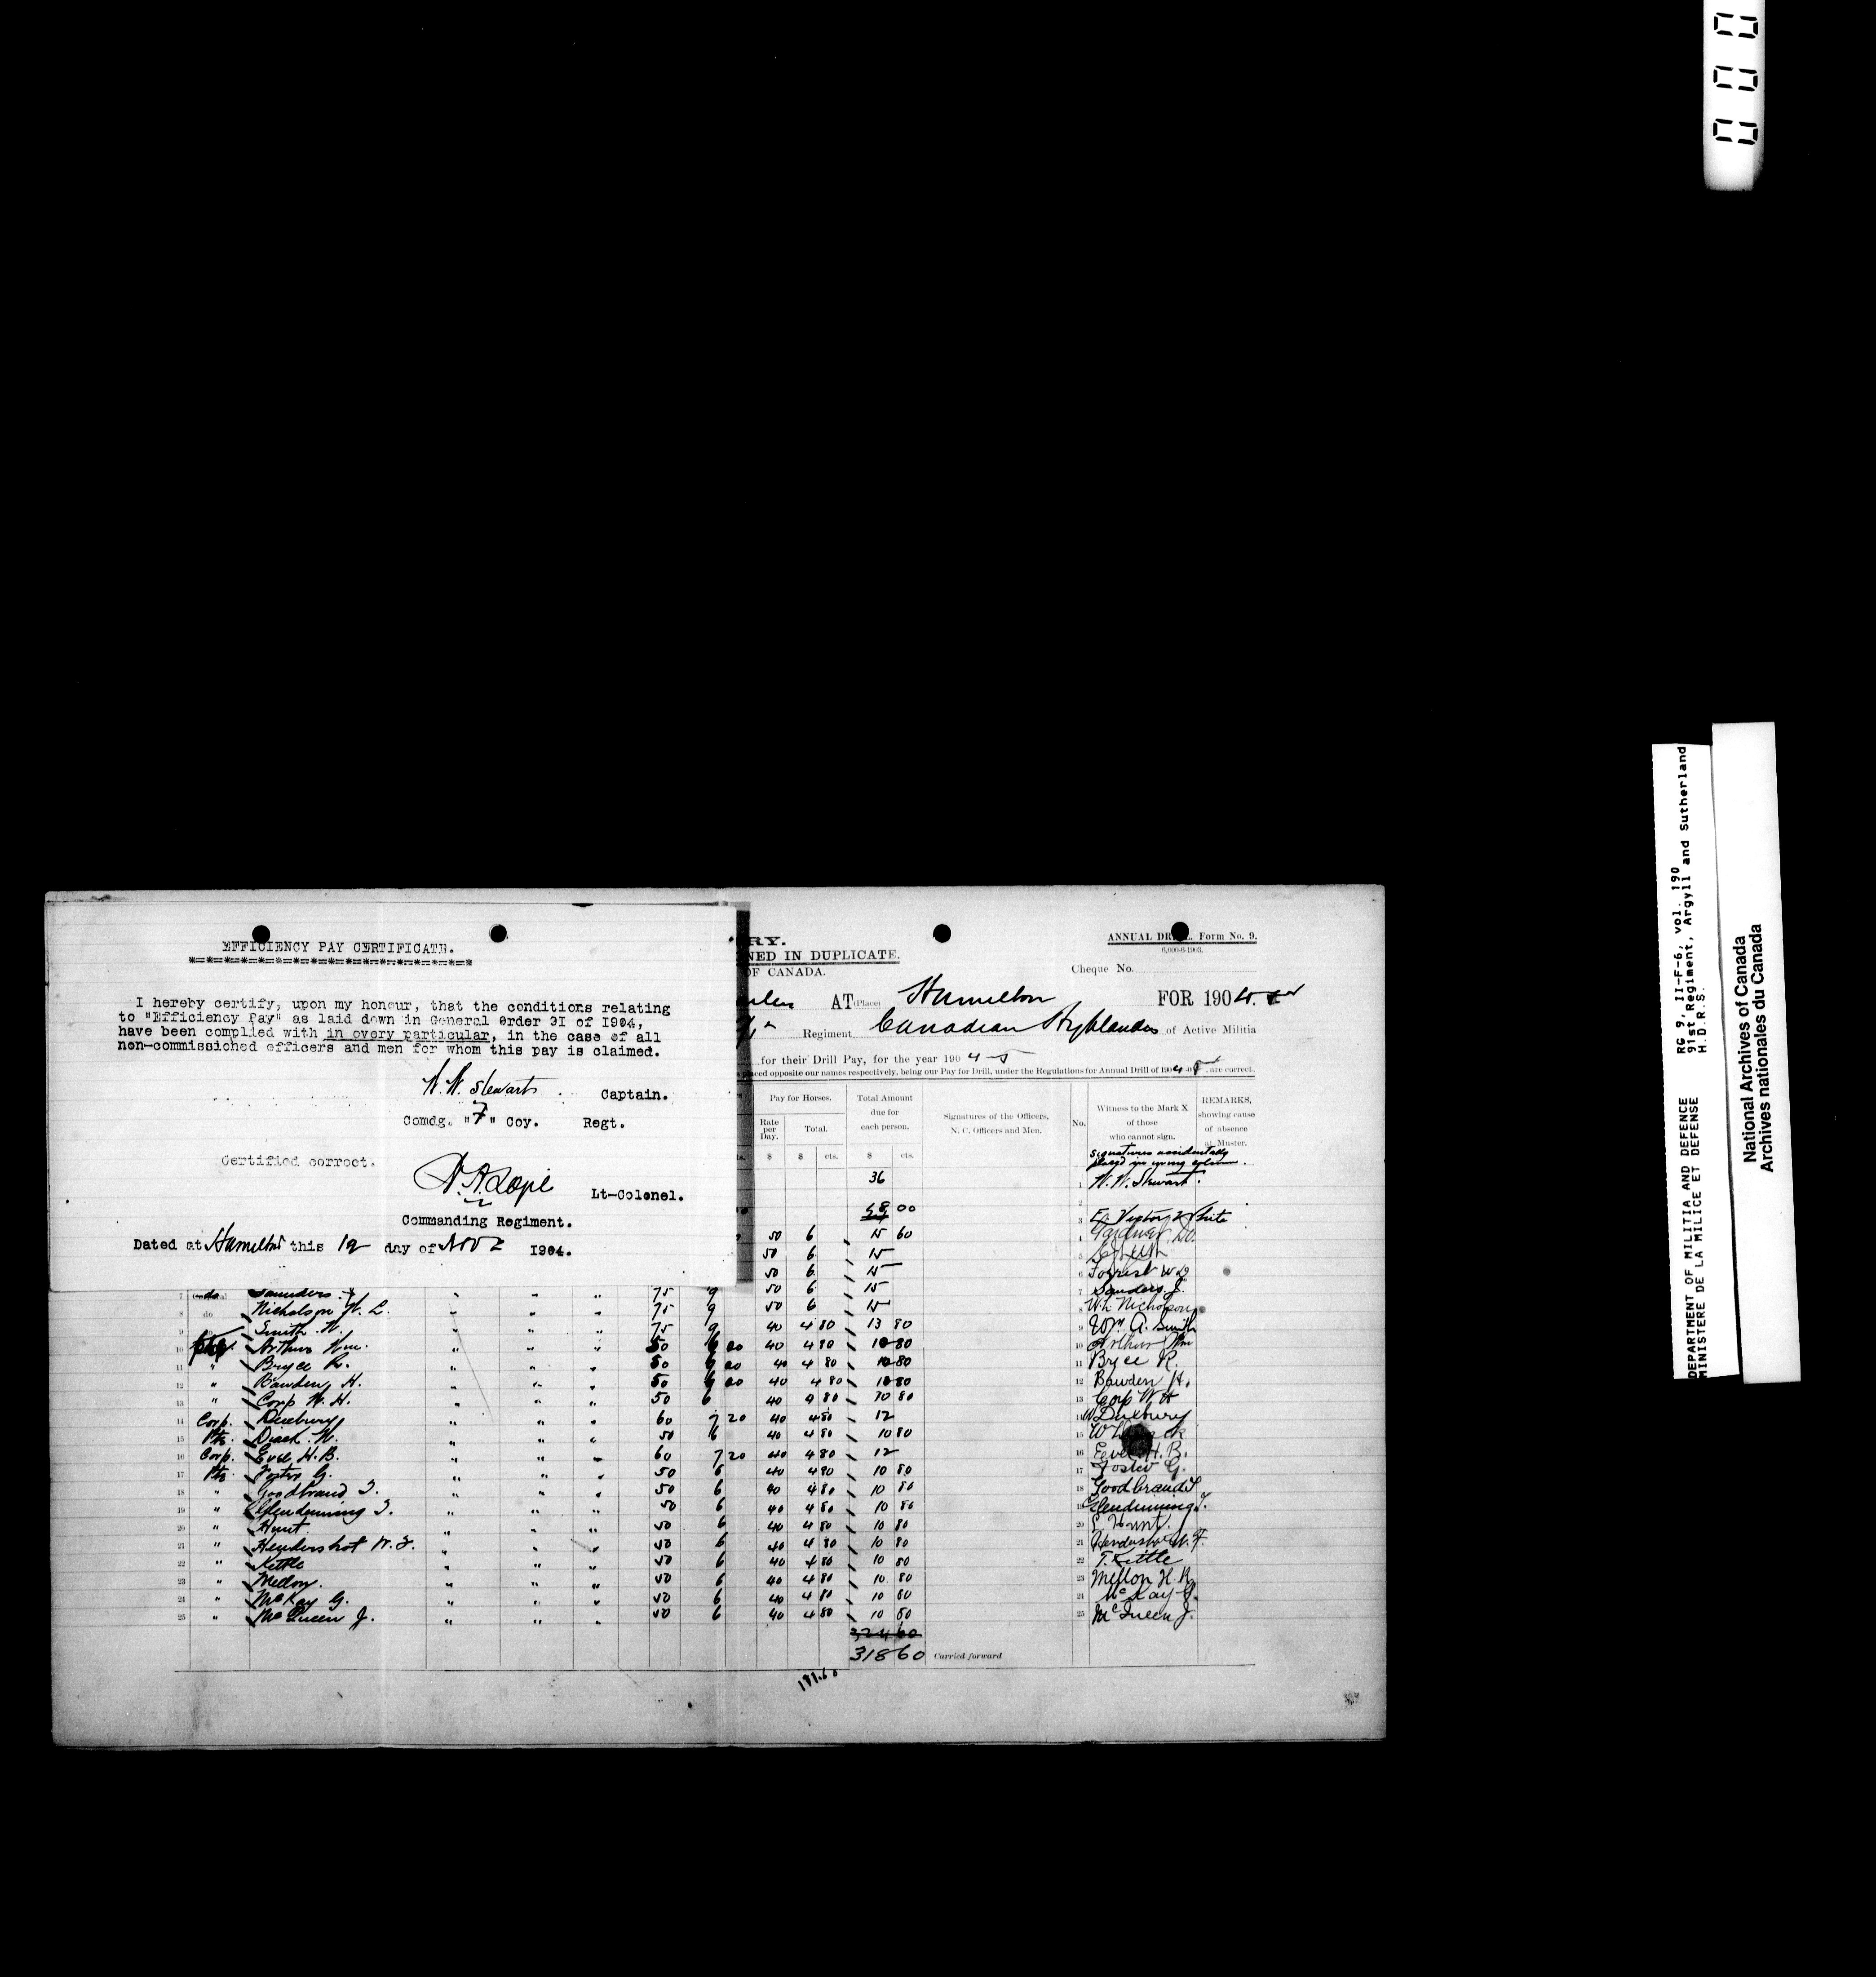 EFFICIENCY PAY CERTIFICATE.
I hereby certify, upon my honour, that the conditions relating
to "Efficiency Pay" as laid down in General Order 31 of 1904,
have been complied with in every particular, in the case of all
non-commissioned officers and men for whom this pay is claimed.
W. W. Stewart Captain.
Comdg. "F" Coy. Regt.
Certified correct.
Lt-Colonel.
Commanding Regiment.
Dated at Hamilton this day of 1904.
RY.
NED IN DUPLICATE.
OF CANADA.
ANNUAL DR Form No. 9.
6,000-6-1903.
Cheque No.
AT (Place) Hamilton FOR 1904
Regiment Canadian Highlanders of Active Militia
for their Drill Pay, for the year 1904-5
placed opposite our names respectively, being our Pay for Drill, under the Regulations for Annual Drill of 1904 , are correct.
Pay for Horses. Total Amount due for each person. Signatures of the Officers, N. C. Officers and Men. No. Witness to the Mark X of those who cannot sign. REMARKS, showing cause of absence at Muster.
Rate per Day. Total.
$ $ cts. $ cts.
signatures accidentally
placed in wrong column.
36 1 W. W. Stewart.
2
00 3
50 6 15 60 4
50 6 15 5
50 6 15 6 Forrest
7 do Saunders 75 9 50 6 15 7 Sanders J.
8 do Nicholson W. L. " " " 75 9 50 6 15 8 W L Nicholson
9 Smith W. " " " 75 9 40 4 80 13 80 9 Wm. A. Smith
10 Arthur Wm. " " " 50 6 00 40 4 80 10 80 10 Arthur Wm
11 " Bryce R. " " " 50 6 00 40 4 80 10 80 11 Bryce R.
12 " Bawden H. " " " 50 6 00 40 4 80 10 80 12 Bawden H.
13 " Corp W. H. " " " 50 6 40 4 80 10 80 13 Corp W H
14 Corp. Duxbury " " " 60 7 20 40 4 80 12 14 W Duxbury
15 Pte. Diack W. " " " 50 6 40 4 80 10 80 15
16 Corp. Evel H. B. " " " 60 7 20 40 4 80 12 16 H. B.
17 Pte. Foster G. " " " 50 6 40 4 80 10 80 17 Foster G.
18 " Goodbrand T. " " " 50 6 40 4 80 10 80 18 Goodbrand T
19 " Glendinning T. " " " 50 6 40 4 80 10 80 19 Glendinning T.
20 " Hunt. " " " 50 6 40 4 80 10 80 20 Hunt.
21 " Hendershot W. F. " " " 50 6 40 4 80 10 80 21 W. F.
22 " Kettle " " " 50 6 40 4 80 10 80 22 T. Kettle
23 " Mellon. " " " 50 6 40 4 80 10 80 23 Mellon H. R.
24 " McKay G. " " " 50 6 40 4 80 10 80 24 McKay G.
25 " McQueen J. " " " 50 6 40 4 80 10 80 25 McQueen J.
324 60
318 60 Carried forward
191.60
000
DEPARTMENT OF MILITIA AND DEFENCE
MINISTERE DE LA MILICE ET DEFENSE
RG 9, II-F-6, vol. 190
91st Regiment, Argyll and Sutherland
H.D.R.S.
National Archives of Canada
Archives nationales du Canada